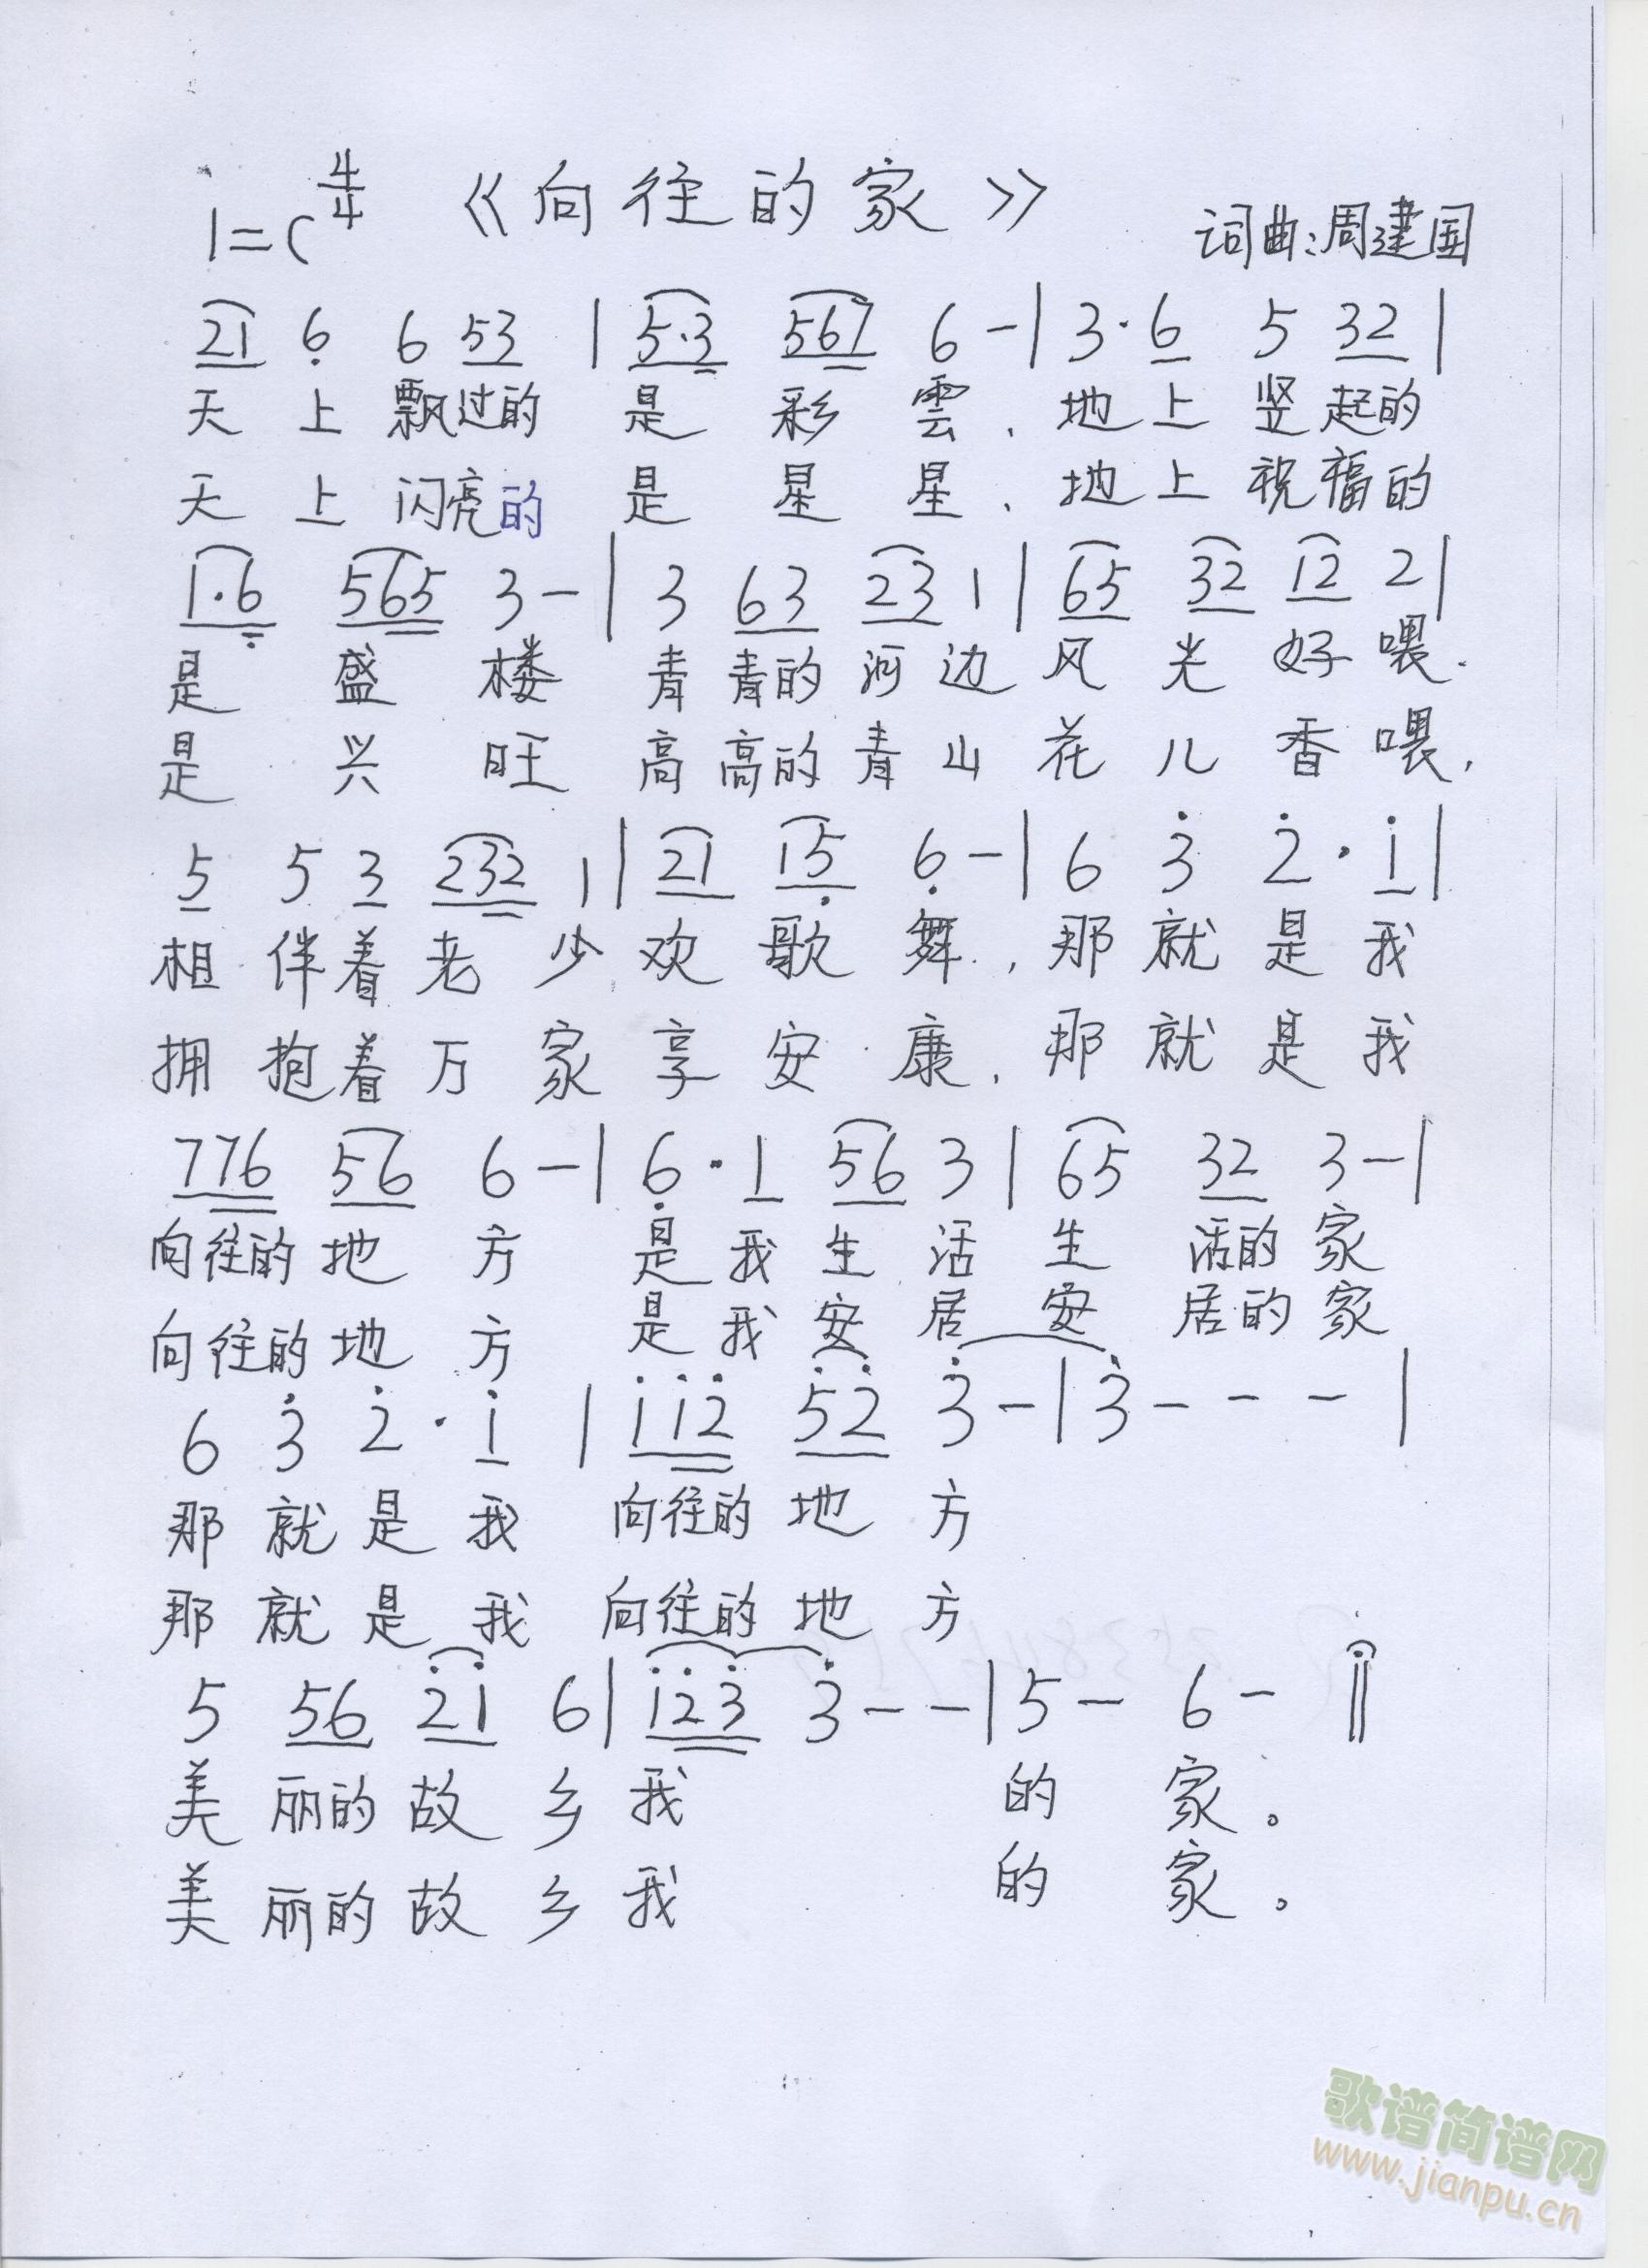 1=C 4/4 《向往的家》
词曲:周建国
21 6 6 53 | 5·3 567 6 - | 3·6 5 32 |
天上飘过的是彩雲、地上竖起的
天上闪亮的是星星、地上祝福的
1·6 565 3 - | 3 63 23 1 | 65 32 12 2 |
是盛楼青青的河边风光好喂.
是兴旺高高的青山花儿香喂,
5 5 3 232 1 | 21 15 6 - | 6 3 2·1 |
相伴着老少欢歌舞,那就是我
拥抱着万家享安康,那就是我
776 56 6 - | 6·1 56 3 | 65 32 3 - |
向往的地方是我生活生活的家
向往的地方是我安居安居的家
6 3 2·1 | 112 52 3 - | 3 - - - |
那就是我向往的地方
那就是我向往的地方
5 56 21 6 | 123 3 - - | 5 - 6 - ‖
美丽的故乡我的家。
美丽的故乡我的家。
歌谱简谱网
www.jianpu.cn